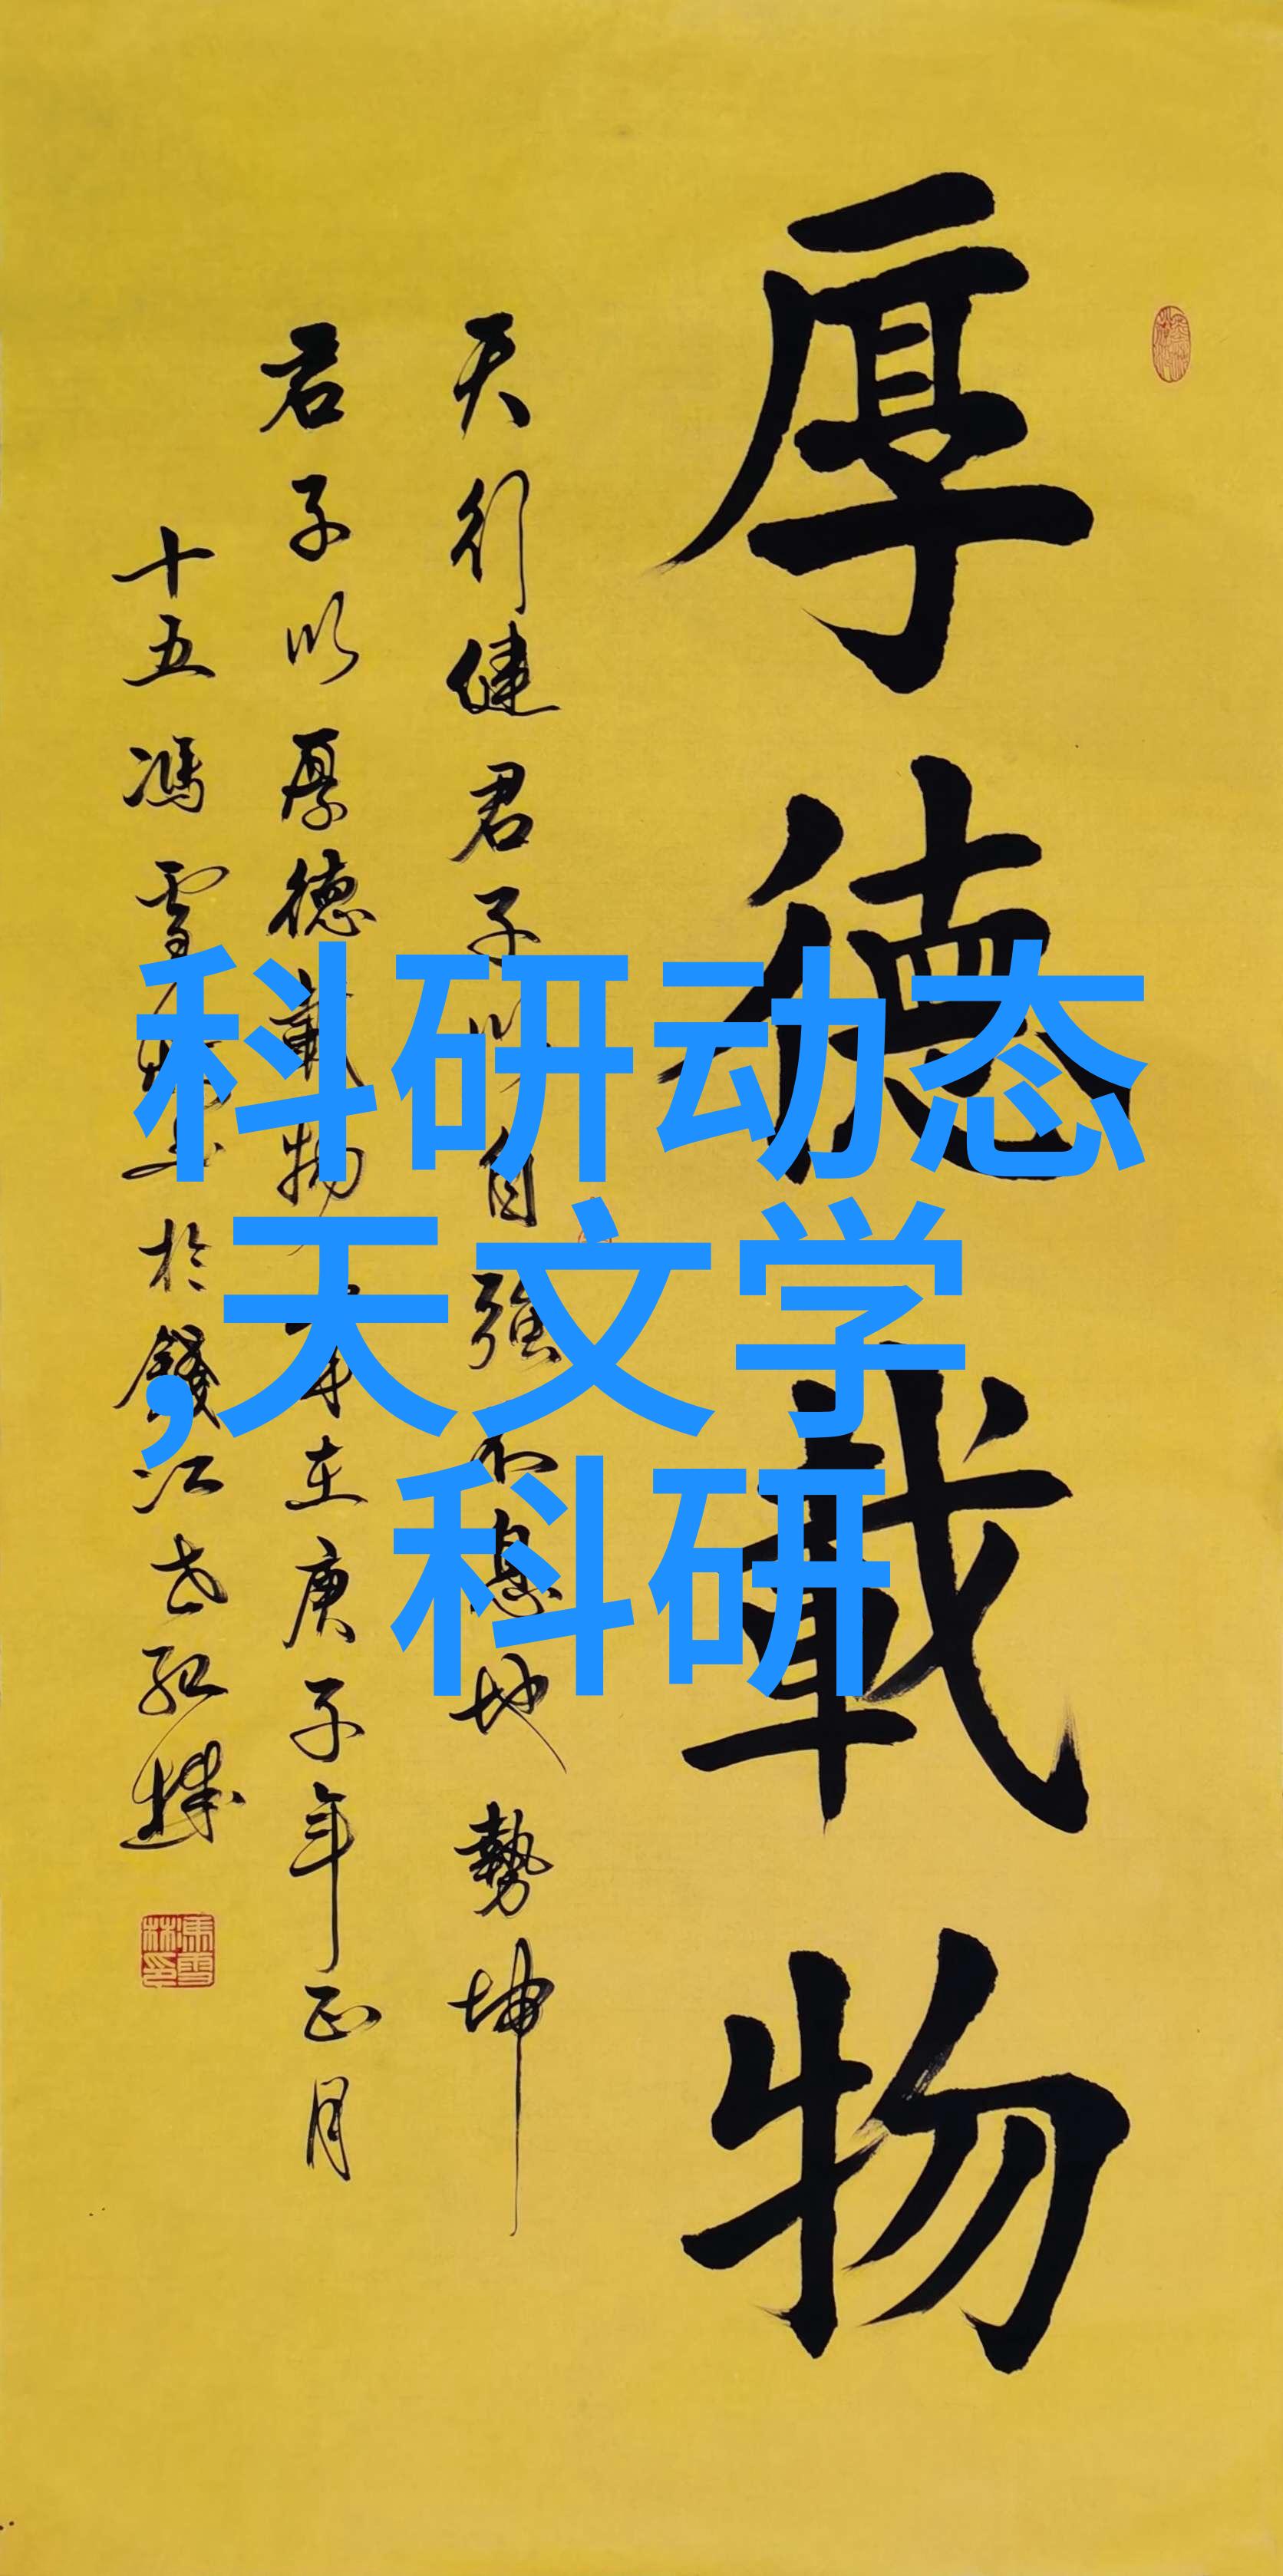 厚德载物
天行健君子以自强不息地势坤
君子以厚德载物 在庚子年正月
十五冯雪林 於钱江
科研动态
,天文学
科研